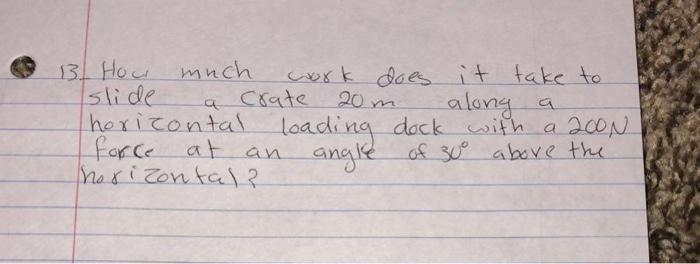 13. How much work does it take to
slide a crate 20 m along a
horizontal loading dock with a 200N
force at an angle of 30° above the
horizontal?